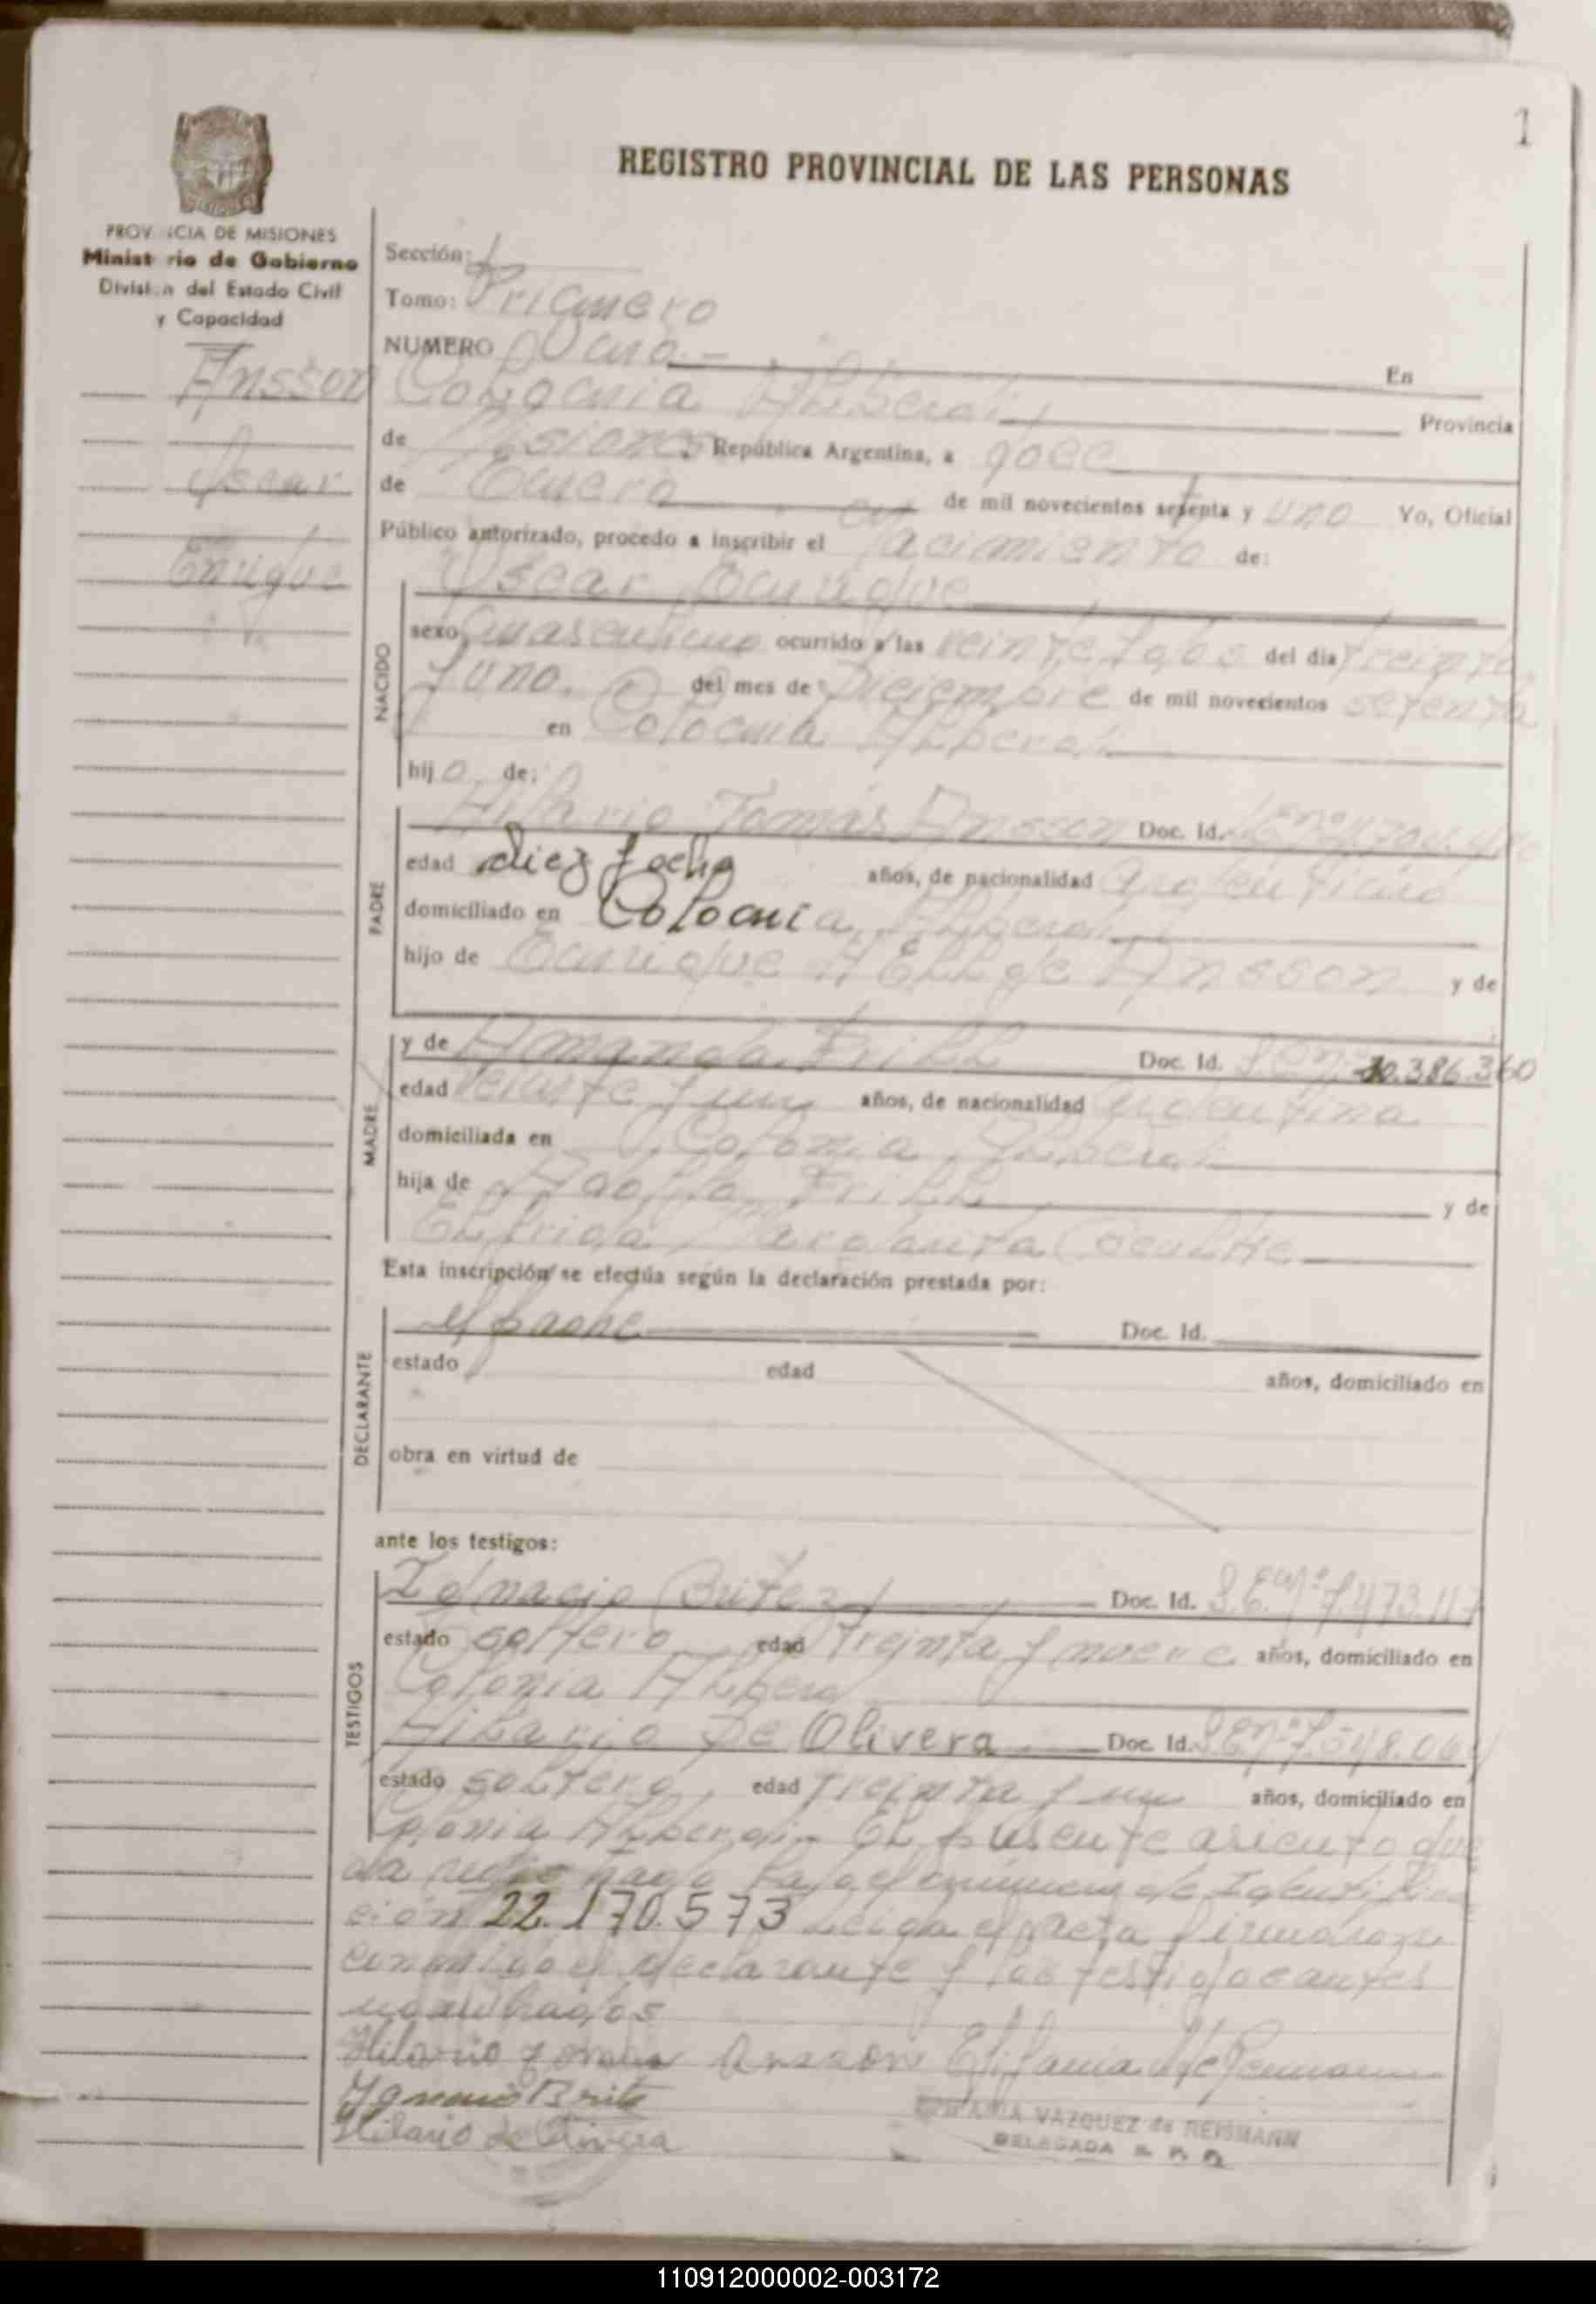 1
REGISTRO PROVINCIAL DE LAS PERSONAS
PROVINCIA DE MISIONES
Ministerio de Gobierno
Division del Estado Civil
y Capacidad
Ansson
Oscar
Enrique
Sección:
Tomo: Primero
NUMERO Uno.- En
Colonia Alberdi Provincia
de Misiones República Argentina, a doce
de Enero de mil novecientos setenta y uno Yo, Oficial
Público autorizado, procedo a inscribir el nacimiento de:
NACIDO
Oscar Enrique
sexo masculino ocurrido a las veinte y dos del día treinta
y uno. del mes de Diciembre de mil novecientos setenta
en Colonia Alberdi
hijo de:
PADRE
Hilario Tomás Ansson Doc. Id.
edad diez y ocho años, de nacionalidad argentino
domiciliado en Colonia Alberdi
hijo de Enrique Ansson y de
MADRE
y de Amanda Frill Doc. Id. 10.386.360
edad veinte y un años, de nacionalidad argentina
domiciliada en Colonia Alberdi
hija de Adolfo Frill y de
Elfrida Margarita
Esta inscripción se efectúa según la declaración prestada por:
DECLARANTE
el padre Doc. Id.
estado edad años, domiciliado en
obra en virtud de
ante los testigos:
TESTIGOS
Ignacio Britez Doc. Id. L.E.nº 7.473.117
estado soltero edad treinta y nueve años, domiciliado en
Colonia Alberdi
Hilario De Olivera Doc. Id. L.E.nº 7.548.06
estado soltero, edad treinta y un años, domiciliado en
Colonia Alberdi.- El presente asiento que
da hago bajo el número de Identifica
ción 22.170.573 Leida el acta firmaron
conmigo el declarante y los testigos antes
nombrados
Hilario Tomas Ansson Epifania V de Reismann
Ignacio Brite
Hilario de Olivera
EPIFANIA VAZQUEZ de REISMANN
DELEGADA
110912000002-003172